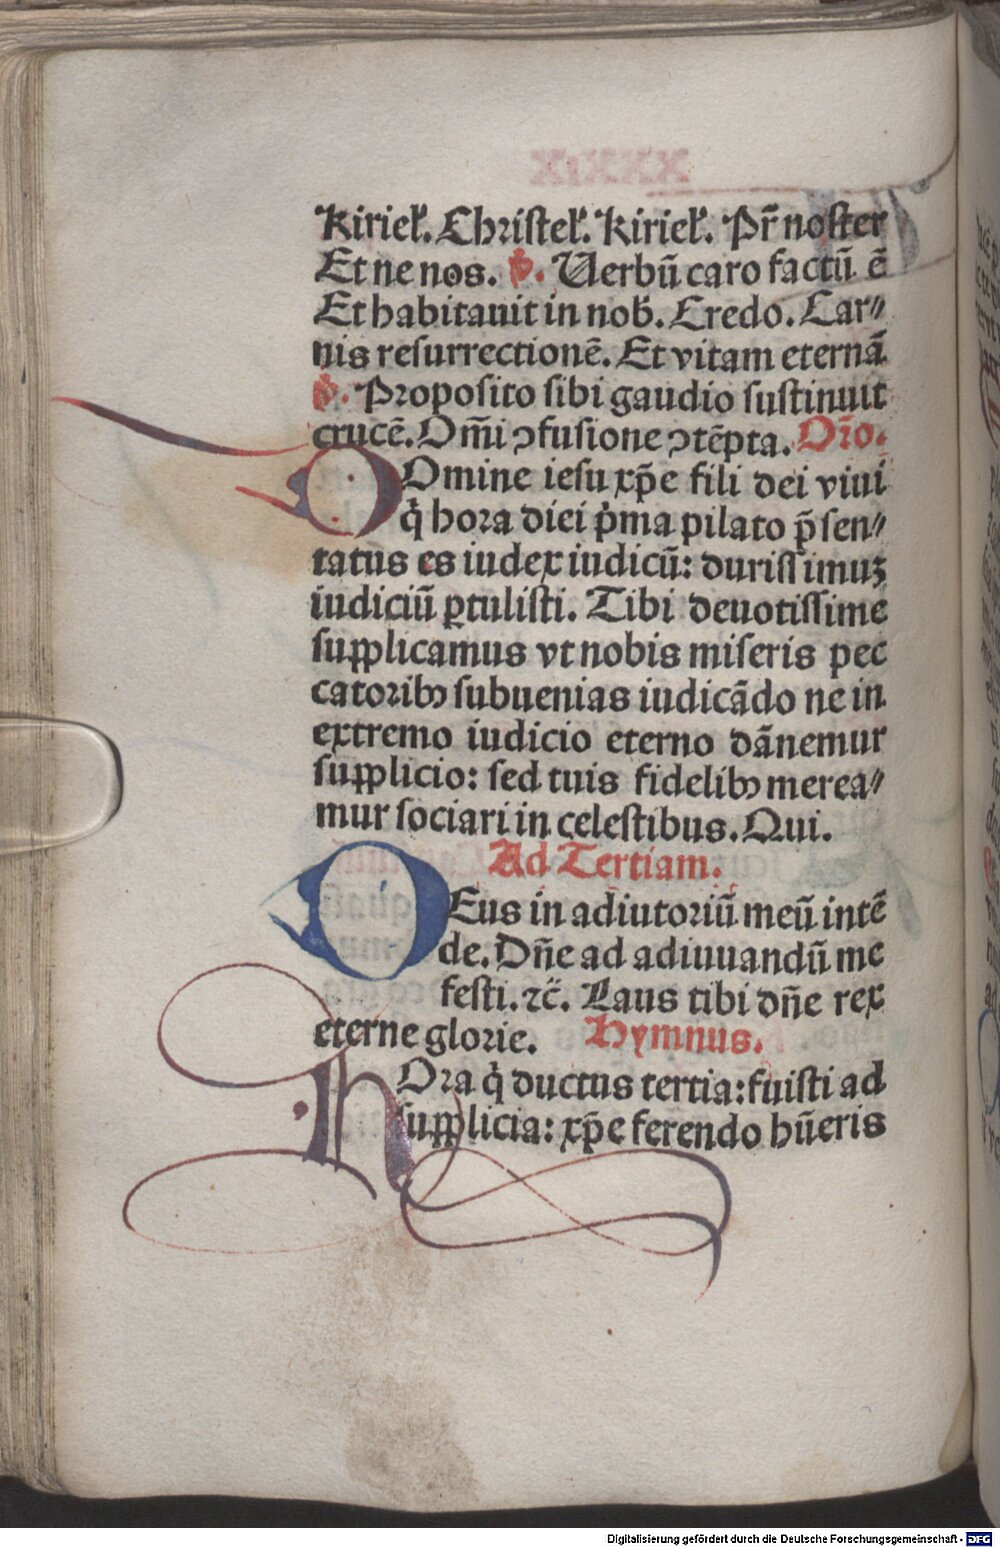 Kiriel̃. Christel̃. Kiriel̃. Pr̃ noster
Et ne nos. ℣. Uerbū caro factū ē
Et habitauit in nob̃. Credo. Car⸗
nis resurrectionē. Et vitam eternā
℣. Proposito sibi gaudio sustinuit
crucē. Om̄i ↄfusione ↄtēpta. Or̃o.
DOmine iesu xp̄e fili dei viui
q̇ hora diei ṗma pilato p̄sen⸗
tatus es iudex iudicū: durissimuꝫ
iudiciū ꝑtulisti. Tibi deuotissime
supplicamus vt nobis miseris pec
catoribꝰ subuenias iudicādo ne in
extremo iudicio eterno dānemur
supplicio: sed tuis fidelibꝰ merea⸗
mur sociari in celestibus. Qui.
Ad Tertiam.
DEus in adiutoriū meū intē
de. Dn̄e ad adiuuandū me
festi. ⁊c̄. Laus tibi dn̄e rex
eterne glorie. Hymnus.
hOra q̇ ductus tertia: fuisti ad
supplicia: xp̄e ferendo hūeris
Digitalisierung gefördert durch die Deutsche Forschungsgemeinschaft - DFG